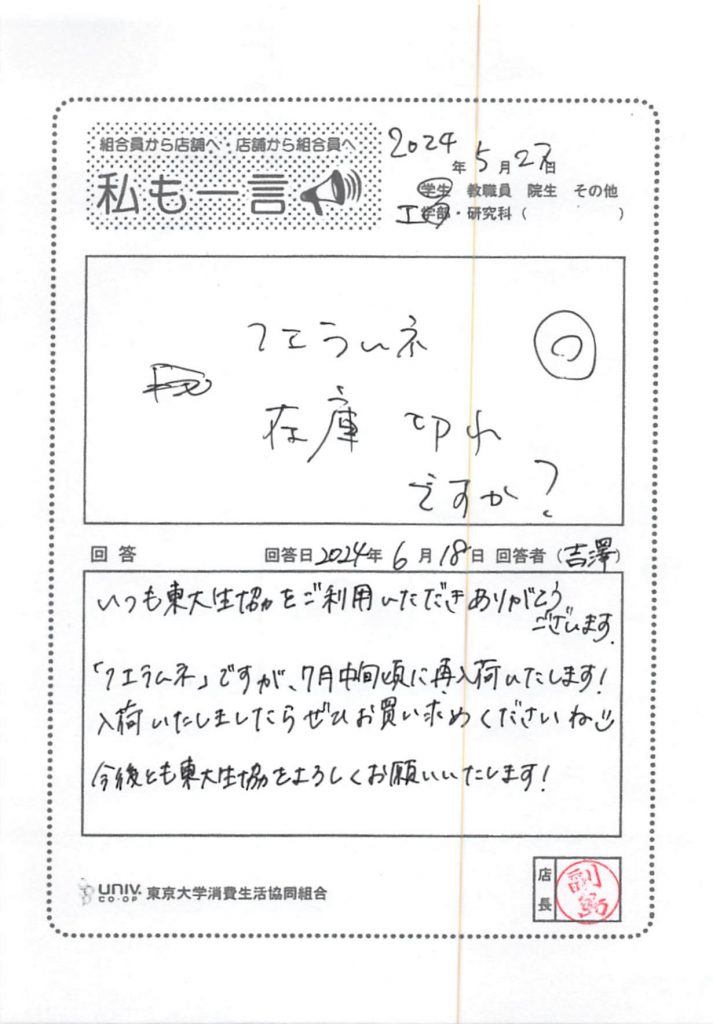 組合員から店舗へ・店舗から組合員へ
私も一言
2024年5月27日
学生 教職員 院生 その他
工学部・研究科（ ）
フエラムネ
在庫切れ
ですか？
回答 回答日2024年6月18日 回答者（吉澤）
いつも東大生協をご利用いただきありがとう
ございます.
「フエラムネ」ですが、7月中旬頃に再入荷いたします！
入荷いたしましたらぜひお買い求めくださいね
今後とも東大生協をよろしくお願いいたします！
UNIV.
CO・OP
東京大学消費生活協同組合
店長
副